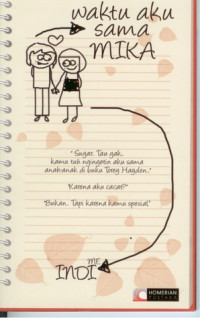 waktu aku
sama
MIKA
"Sugar. Tau gak,
kamu tuh ngingetin aku sama
anak-anak di buku Torey Hayden."
"Karena aku cacat?"
"Bukan. Tapi karena kamu special"
ME
INDI
HOMERIAN
PUSTAKA